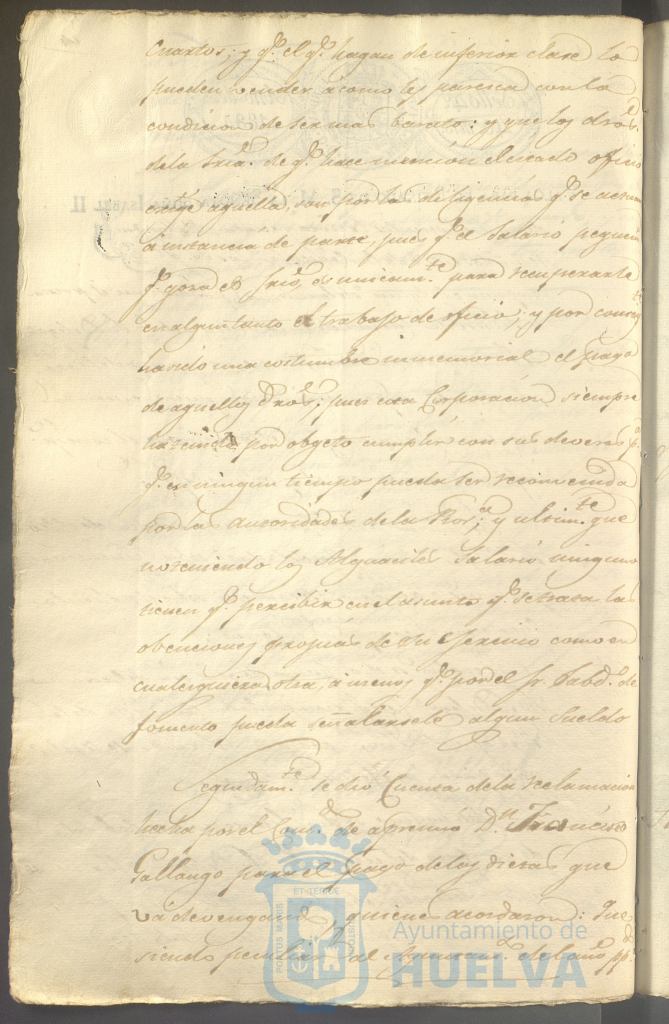 cuartos; y q.e el q.e hagan de inferior clase lo
pueden vender á como les paresca con la
condicion de ser mas barato: y que los dros.
de la Sria. de q.e hace mencion el citado oficio
exige aquella, son por las diligencias q.e se actuan
á instancia de parte, pues q.e el Salario pequeño
q.e goza el Srio. es unicam.te para recuperarle
en algun tanto el trabajo de oficio; y por
havido una costumbre inmemorial el pago
de aquellos dros.: pues esta Corporacion siempre
ha tenido por objeto cumplir con sus deveres
q.e en ningun tiempo pueda ser reconvenida
por las autoridades de la y ultim.te que
no teniendo los Alguaciles Salario ninguno
tienen q.e percibir en el asunto q.e se trata las
obenciones propias de su Exercicio como en
cualesquiera otra, á menos q.e por el Sr. Subd.o de
fomento pueda señalarsele algun Sueldo
Seguidam.te se dió Cuenta de la reclamacion
hecha por el Com.do de apremio D.n Francisco
Gallango para el pago de las dietas que
vá devengando, quienes acordaron: Que
siendo peculiar al Ayuntam.to del año pp.do
II
PORTUS MARIS ET TERRE CUSTODIA
Ayuntamiento de
HUELVA